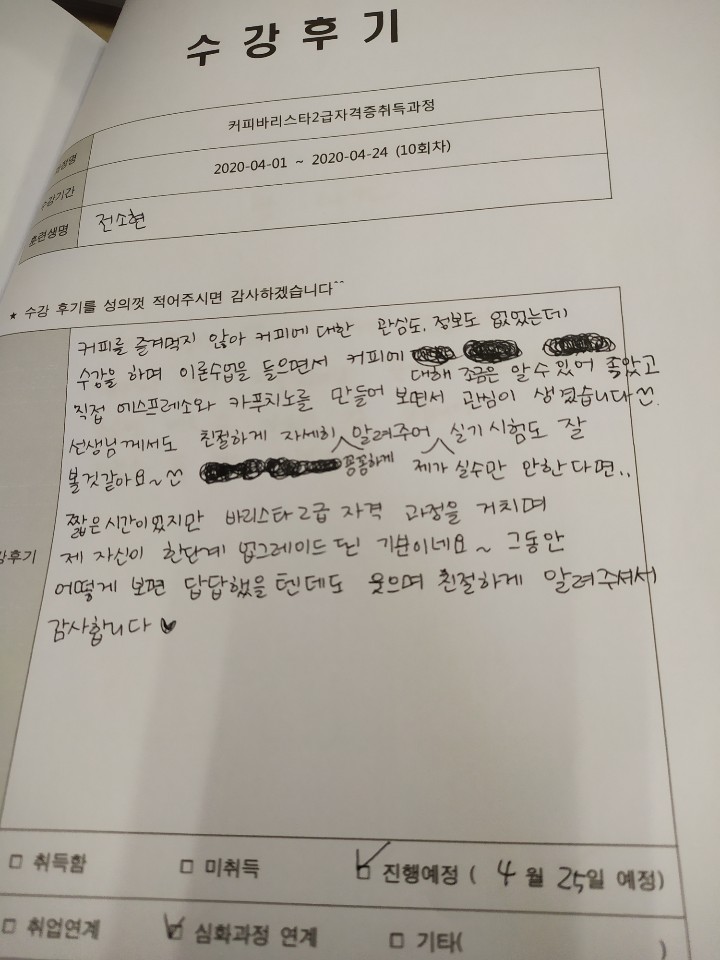 수강후기
커피바리스타2급자격증취득과정
2020-04-01 ~ 2020-04-24 (10회차)
수강기간
훈련생명 전소현
★ 수강 후기를 성의껏 적어주시면 감사하겠습니다^^
커피를 즐겨먹지 않아 커피에 대한 관심도, 정보도 없었는데
수강을 하며 이론수업을 들으면서 커피에
대해 조금은 알 수 있어 좋았고
직접 에스프레소와 카푸치노를 만들어 보면서 관심이 생겼습니다^^.
선생님께서도 친절하게 자세히 알려주어 실기시험도 잘
볼것같아요~^^ 꼼꼼하게 제가 실수만 안한다면..
짧은시간이었지만 바리스타2급 자격 과정을 거치며
제 자신이 한단계 업그레이드 된 기분이네요~ 그동안
어떻게 보면 답답했을텐데도 웃으며 친절하게 알려주셔서
감사합니다♥
강후기
□ 취득함 □ 미취득 ☑ 진행예정 ( 4월 25일 예정)
□ 취업연계 ☑ 심화과정 연계 □ 기타( )